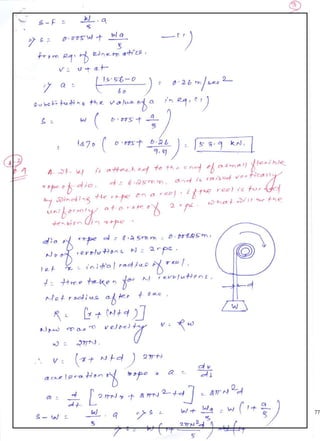 S-F = W/g . a
=> S = 0.005W + Wa/g —(1)
from Eq. of Kinematics.
V = u + at
=> a = (15.56-0 / 60) = 0.26 m/sec2
Substituting the value of a in Eq. (1)
S = W ( 0.005 + a/g )
= 1870 ( 0.005 + 0.26/9.81 ) = 58.9 kN.
A wt. W is attached to the end of a small flexible
rope of dia. d = 6.25mm. and is raised vertically
by winding the rope on a reel. If the reel is turned
uniformly at a rate of 2 rps. What will be the
tension in rope.
dia of rope d = 6.25mm =
No of revolutions N = 2 rps.
let r = initial radius of reel.
t = time taken for N revolutions.
Net radius after t sec.
R = [r + (Nt d)]
Now mean velocity V = Rω
ω = 2πN.
∴ V = (r + Ntd) 2πN
acceleration of rope a = dv/dt
a = d/dt [2πNr + 2πN²td] = 2πN²d
S - W = W/g . a => S = W + Wa/g = W (1 + a/g)
=> S = W (1 + 2πN²d/g)
d
W
77